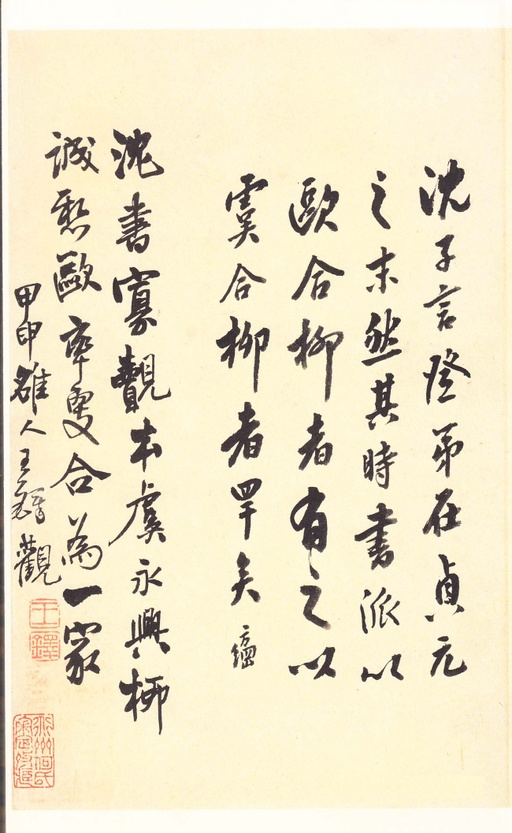 沈子言登第在貞元
之末然其時書派以
歐合柳者有之以
虞合柳者罕矣
沈書寡覯本虞永興柳
誠懸歐率更合為一家
甲申雒人王鐸觀
王鐸